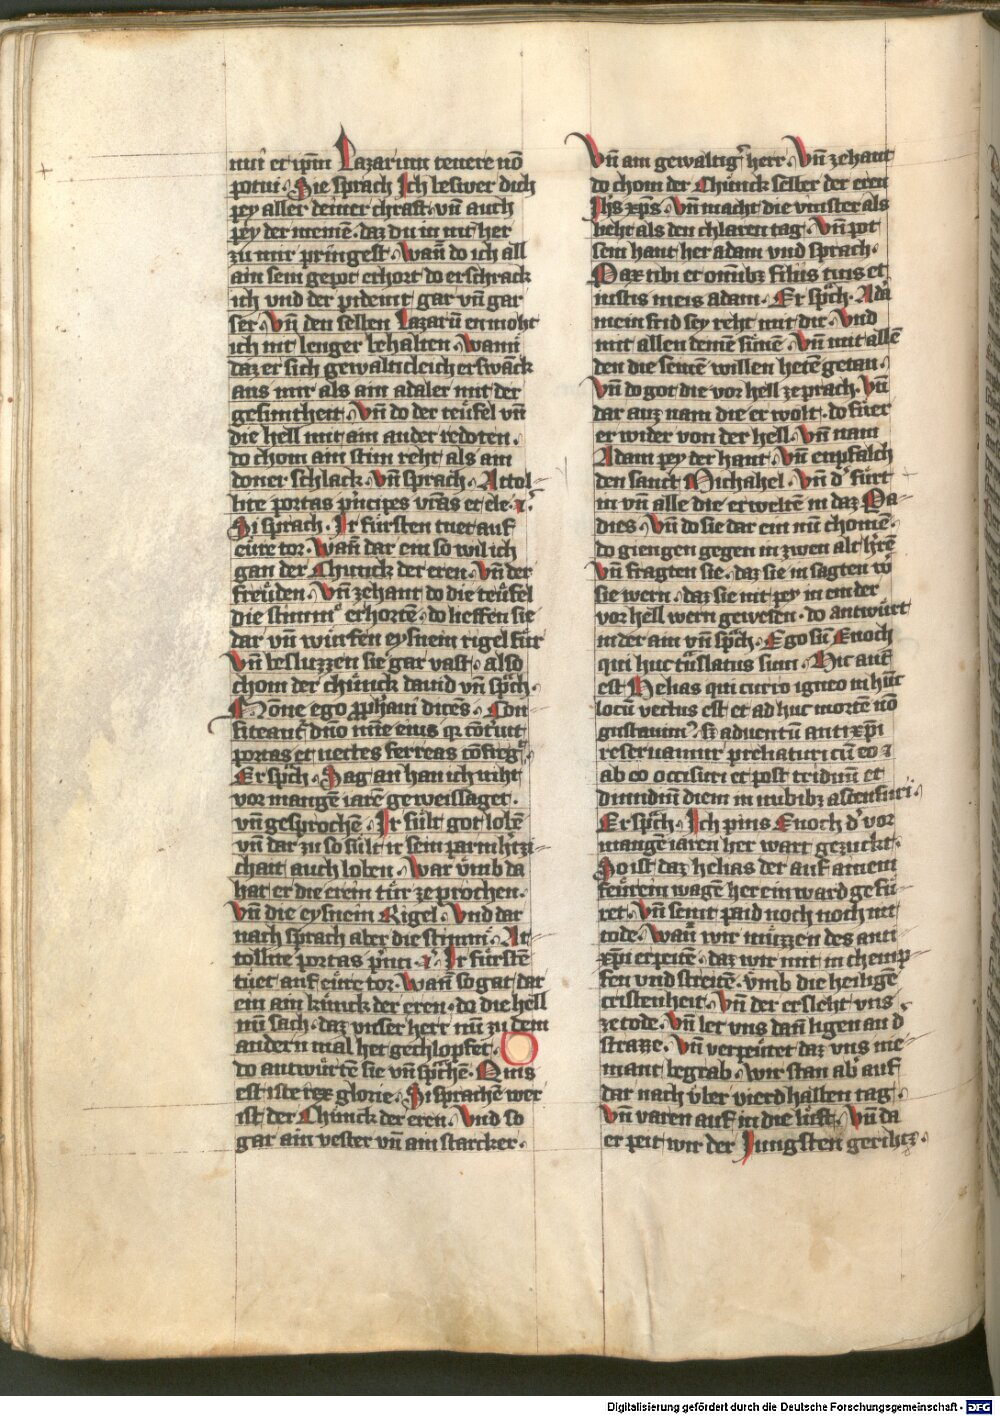 nui et ip̄m Lazarum tenere nō
potui. Sie sprach Ich beswer dich
pey aller deiner chraft. vn̄ auch
pey der meinē. daz du in nit her
zu mir pringest. Wan̄ do ich all
ain sein gepot erhort do erschrack
ich vnd der pidemt gar vn̄ gar
ser. Vn̄ den selben Lazarū enmoht
ich nit lenger behalten. Wann
daz er sich gewalticleich erswāck
aus mir als ain adaler mit der
gesuntheit. Vn̄ do der teüfel vn̄
die hell mit ain ander redoten.
do chom ain stim reht als ain
doner schlack. Vn̄ sprach. Attol
lite portas pn̄cipes vr̄as et ele. r̄.
Si sprach. Ir fürsten tuet auf
eüre tor. Wan̄ dar ein so wil ich
gan der Chünck der eren. Vn̄ der
freüden. Vn̄ zehant do die teüfel
die stimm erhortē. do lieffen sie
dar vn̄ würfen eysnein rigel für
Vn̄ besluzzen sie gar vast. also
chom der chünck dauid vn̄ sp̄ch.
Nōne ego ꝓph̄aui dices. Con
fiteant̄ dn̄o mīe eius qr̄ cōt'uit
portas et uectes ferreas cōfreḡ.
Er sp̄ch. Sag an han ich niht
vor mangē iarē geweissaget.
vn̄ gesprochē. Ir sült got lobē
vn̄ dar zu so sült ir sein parmh'tzi
chait auch loben. War ümb da
hat er die erein tür zeprochen.
Vn̄ die eysnein Rigel. Vnd dar
nach sprach aber die stimm̄. At
tollite portas p'nci. r̄. Ir fürstē
tüet auf eüre tor. Wan̄ so gat dar
ein ain künck der eren. do die hell
nū sach. daz vnser herr nū zu dem
andern mal het gechlopfet.
do antwürtē sie vn̄ sp̄chē. Quis
est iste rex glorie. Si sprachē wer
ist der Chünck der eren. Vnd so
gar ain vester vn̄ ain starcker.
Vn̄ ain gewaltig' herr. Vn̄ zehant
do chom der Chünck selber der eren
Jh̄s xp̄s. Vn̄ macht die vinster als
lieht als den chlaren tag. Vn̄ pot
sein hant her adam vnd sprach.
Pax tibi et om̄ibꝫ filiis tuis et
iustis meis adam. Er sp̄ch. Adā
mein frid sey reht mit dir. Vnd
mit allen deinē sünē. Vn̄ mit allē
den die seinē willen hetē getan.
Vn̄ do got die vor hell zeprach. Vn̄
dar auz nam die er wolt. do füer
er wider von der hell. Vn̄ nam
Adam pey der hant. Vn̄ enpfalch
den sanct Michahel. Vn̄ d' fürt
in vn̄ alle die erweltē in daz Pa
dies. Vn̄ do sie dar ein nū chomē.
do giengen gegen in zwen alt h'rē
Vn̄ fragten sie. daz sie in sagten wo
sie wern. daz sie nit pey in in der
vor hell wern gewesen. do antwürt
in der ain vn̄ sp̄ch. Ego sū Enoch
qui huc tn̄slatus sum. Hic aut̄
est Helias qui curro igneo in hūc
locū vectus est et ad huc mortē nō
gustauim'. s̄ aduentū anti xp̄i
reseruamur preliaturi cū eo ⁊
ab eo occisuri et post tridiuū et
dimidiū diem in nubibꝫ ascensuri.
Er sp̄ch. Ich pins Enoch d' vor
mangē iaren her wart gezuckt.
So ist daz helias der auf ainem
feürein wagē her ein ward gefü
ret. Vn̄ seint paid noch noch nit
tode. Wan̄ wir müzzen des anti
xp̄i erpeitē. daz wir mit in chemp
fen vnd streitē. vmb die heiligē
cristenheit. Vn̄ der erslcht vns
ze tode. Vn̄ let vns dan̄ ligen an d'
strazze. Vn̄ verpeütet daz vns nie
mant begrab. Wir stan ab' auf
dar nach über vierdhalben tag.
Vn̄ varen auf in die lüft. Vn̄ da
erpeit wir der Jungsten gerihtz.
Digitalisierung gefördert durch die Deutsche Forschungsgemeinschaft - DFG